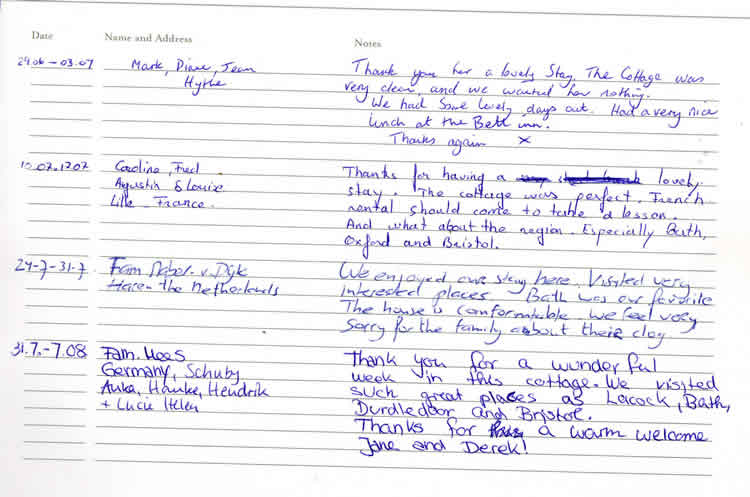 Date Name and Address Notes
24.06 - 03.07 Mark, Diane, Jean Thank you for a lovely Stay. The Cottage was
Hythe very clean, and we wanted for nothing.
We had some lovely days out. Had a very nice
lunch at the Bell inn.
Thanks again x
10.07.1207 Caroline, Fred Thanks for having a lovely
Agustin & Louise stay. The cottage was perfect. French
Lille - France. rental should come to take a lesson.
And what about the region. Especially Bath,
Oxford and Bristol.
24-7-31-7 Fam v. Dijk We enjoyed our stay here. Visited very
Haren - the Netherlands interested places. Bath was our favorite
The house is comfortable. We feel very
sorry for the family about their dog
31.7. - 7.08 Fam. Hees Thank you for a wunderful
Germany, Schuby week in this cottage. We visited
Anka, Hauke, Hendrik such great places as Lacock, Bath,
+ Lucie Helen Durdledoor and Bristol.
Thanks for a warm welcome
Jane and Derek!